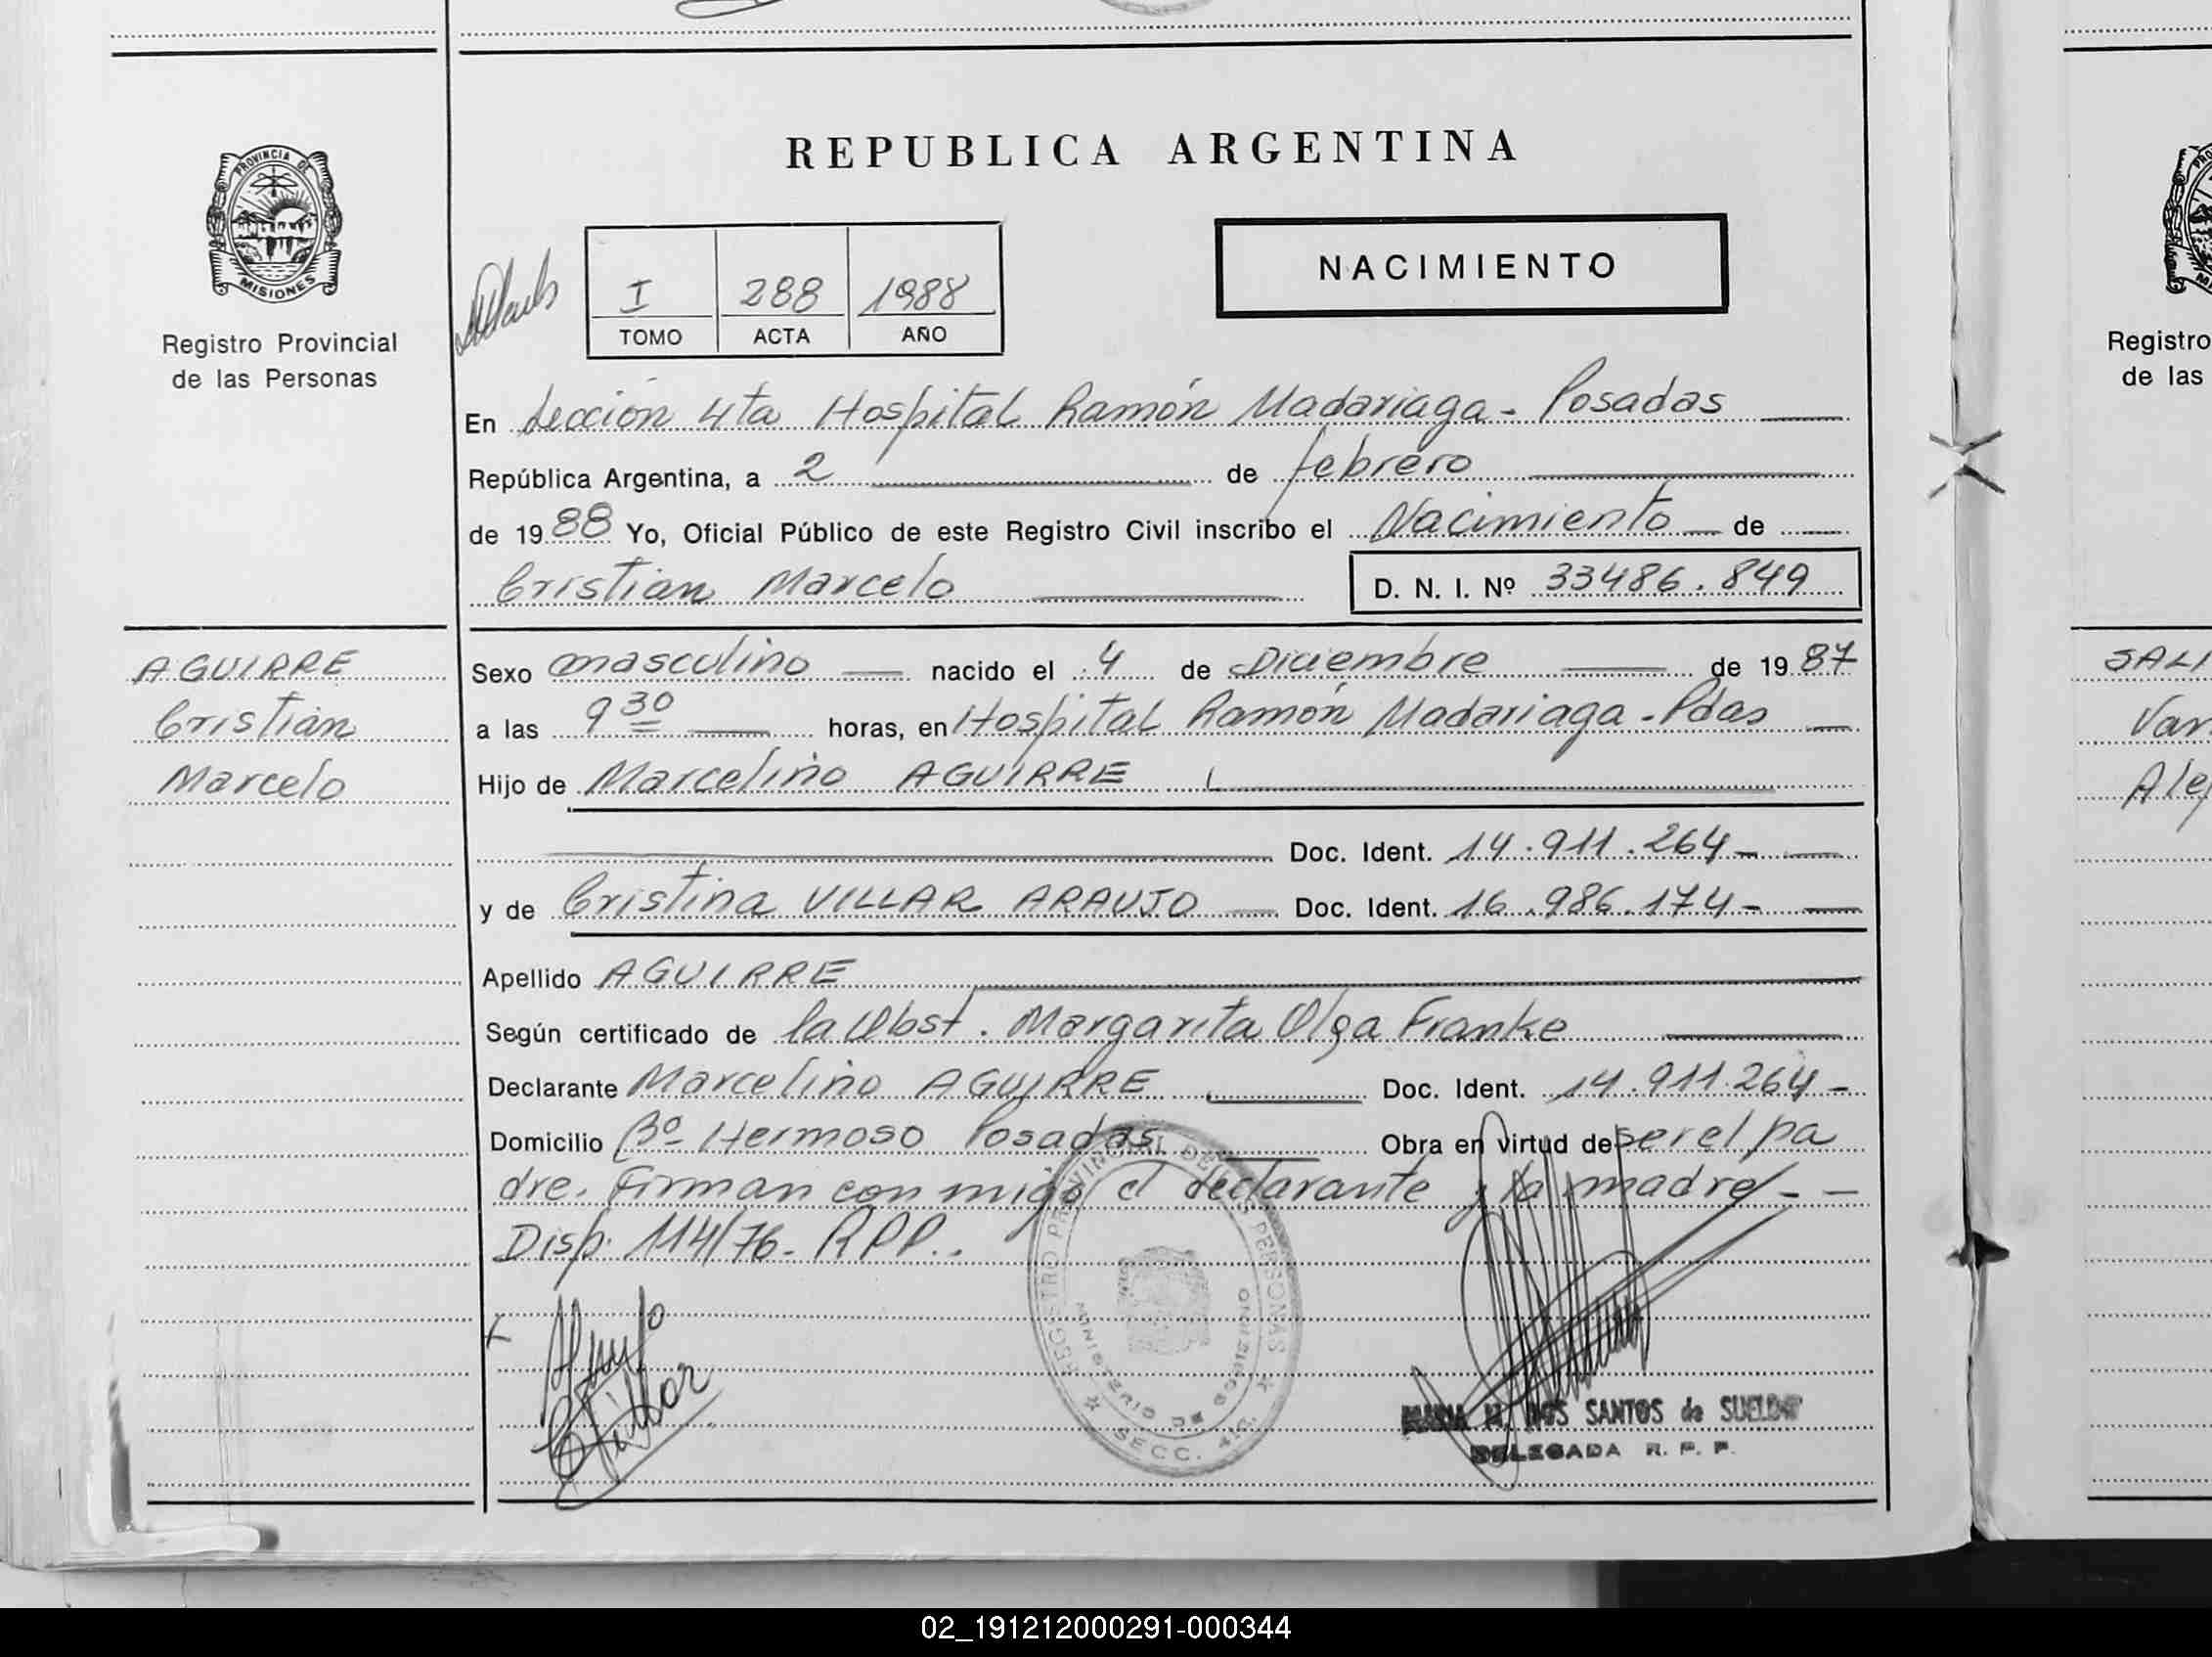 REPUBLICA ARGENTINA
PROVINCIA DE
MISIONES
Registro Provincial
de las Personas
I 288 1988
TOMO ACTA AÑO
NACIMIENTO
En Sección 4ta Hospital Ramón Madariaga - Posadas
República Argentina, a 2 de febrero
de 1988 Yo, Oficial Público de este Registro Civil inscribo el Nacimiento de
Cristian Marcelo D. N. I. Nº 33486.849
AGUIRRE
Cristian
Marcelo
Sexo masculino nacido el 4 de Diciembre de 1987
a las 9 30 horas, en Hospital Ramón Madariaga - Pdas
Hijo de Marcelino AGUIRRE
Doc. Ident. 14.911.264-
y de Cristina VILLAR ARAUJO Doc. Ident. 16.986.174-
Apellido AGUIRRE
Según certificado de la Obst. Margarita Olga Franke
Declarante Marcelino AGUIRRE Doc. Ident. 14.911.264-
Domicilio Bº Hermoso Posadas Obra en virtud de ser el pa
dre. Firman conmigo el declarante y la madre - -
Disp. 114/76- RPP.
REGISTRO PROVINCIAL DE LAS PERSONAS
MINISTERIO DE GOBIERNO
SECC. 4ta.
MARIA N. DOS SANTOS de SUELDO
DELEGADA R. P. P.
Registro
de las
SALI
Van
Alej
02_191212000291-000344